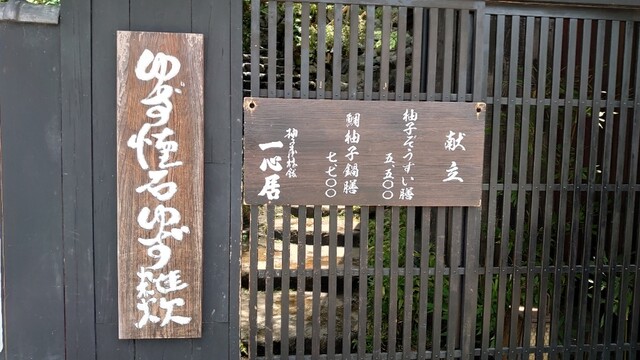 ゆず懐石ゆず雑炊
献立
柚子ぞうすい膳
五、五〇〇
鯛柚子鍋膳
七、七〇〇
柚子屋旅館
一心居